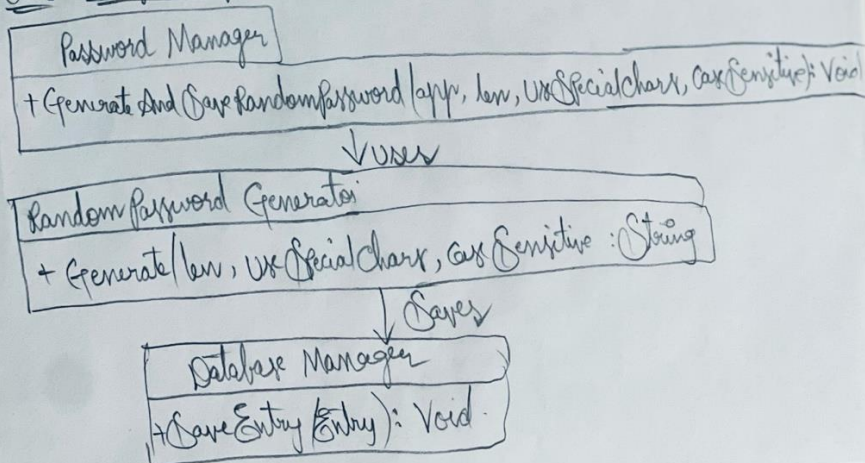 Password Manager
+ Generate And Save RandomPassword(app, len, useSpecialChars, CaseSensitive): Void
uses
RandomPassword Generator
+ Generate(len, useSpecialChars, caseSensitive : String
Saves
Database Manager
+SaveEntry(Entry): Void